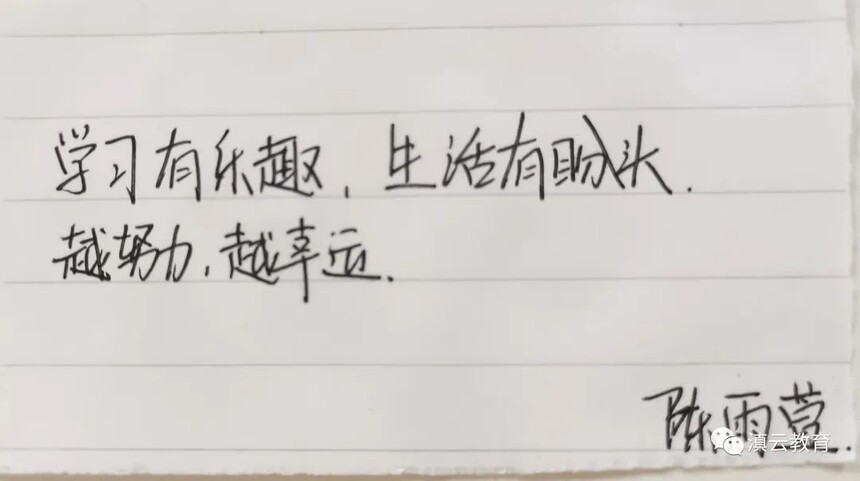 学习有乐趣，生活有盼头.
越努力，越幸运.
陈雨萱.
滇云教育